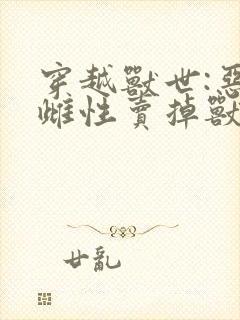 穿越獸世:惡
雌性賣掉獸
廿亂